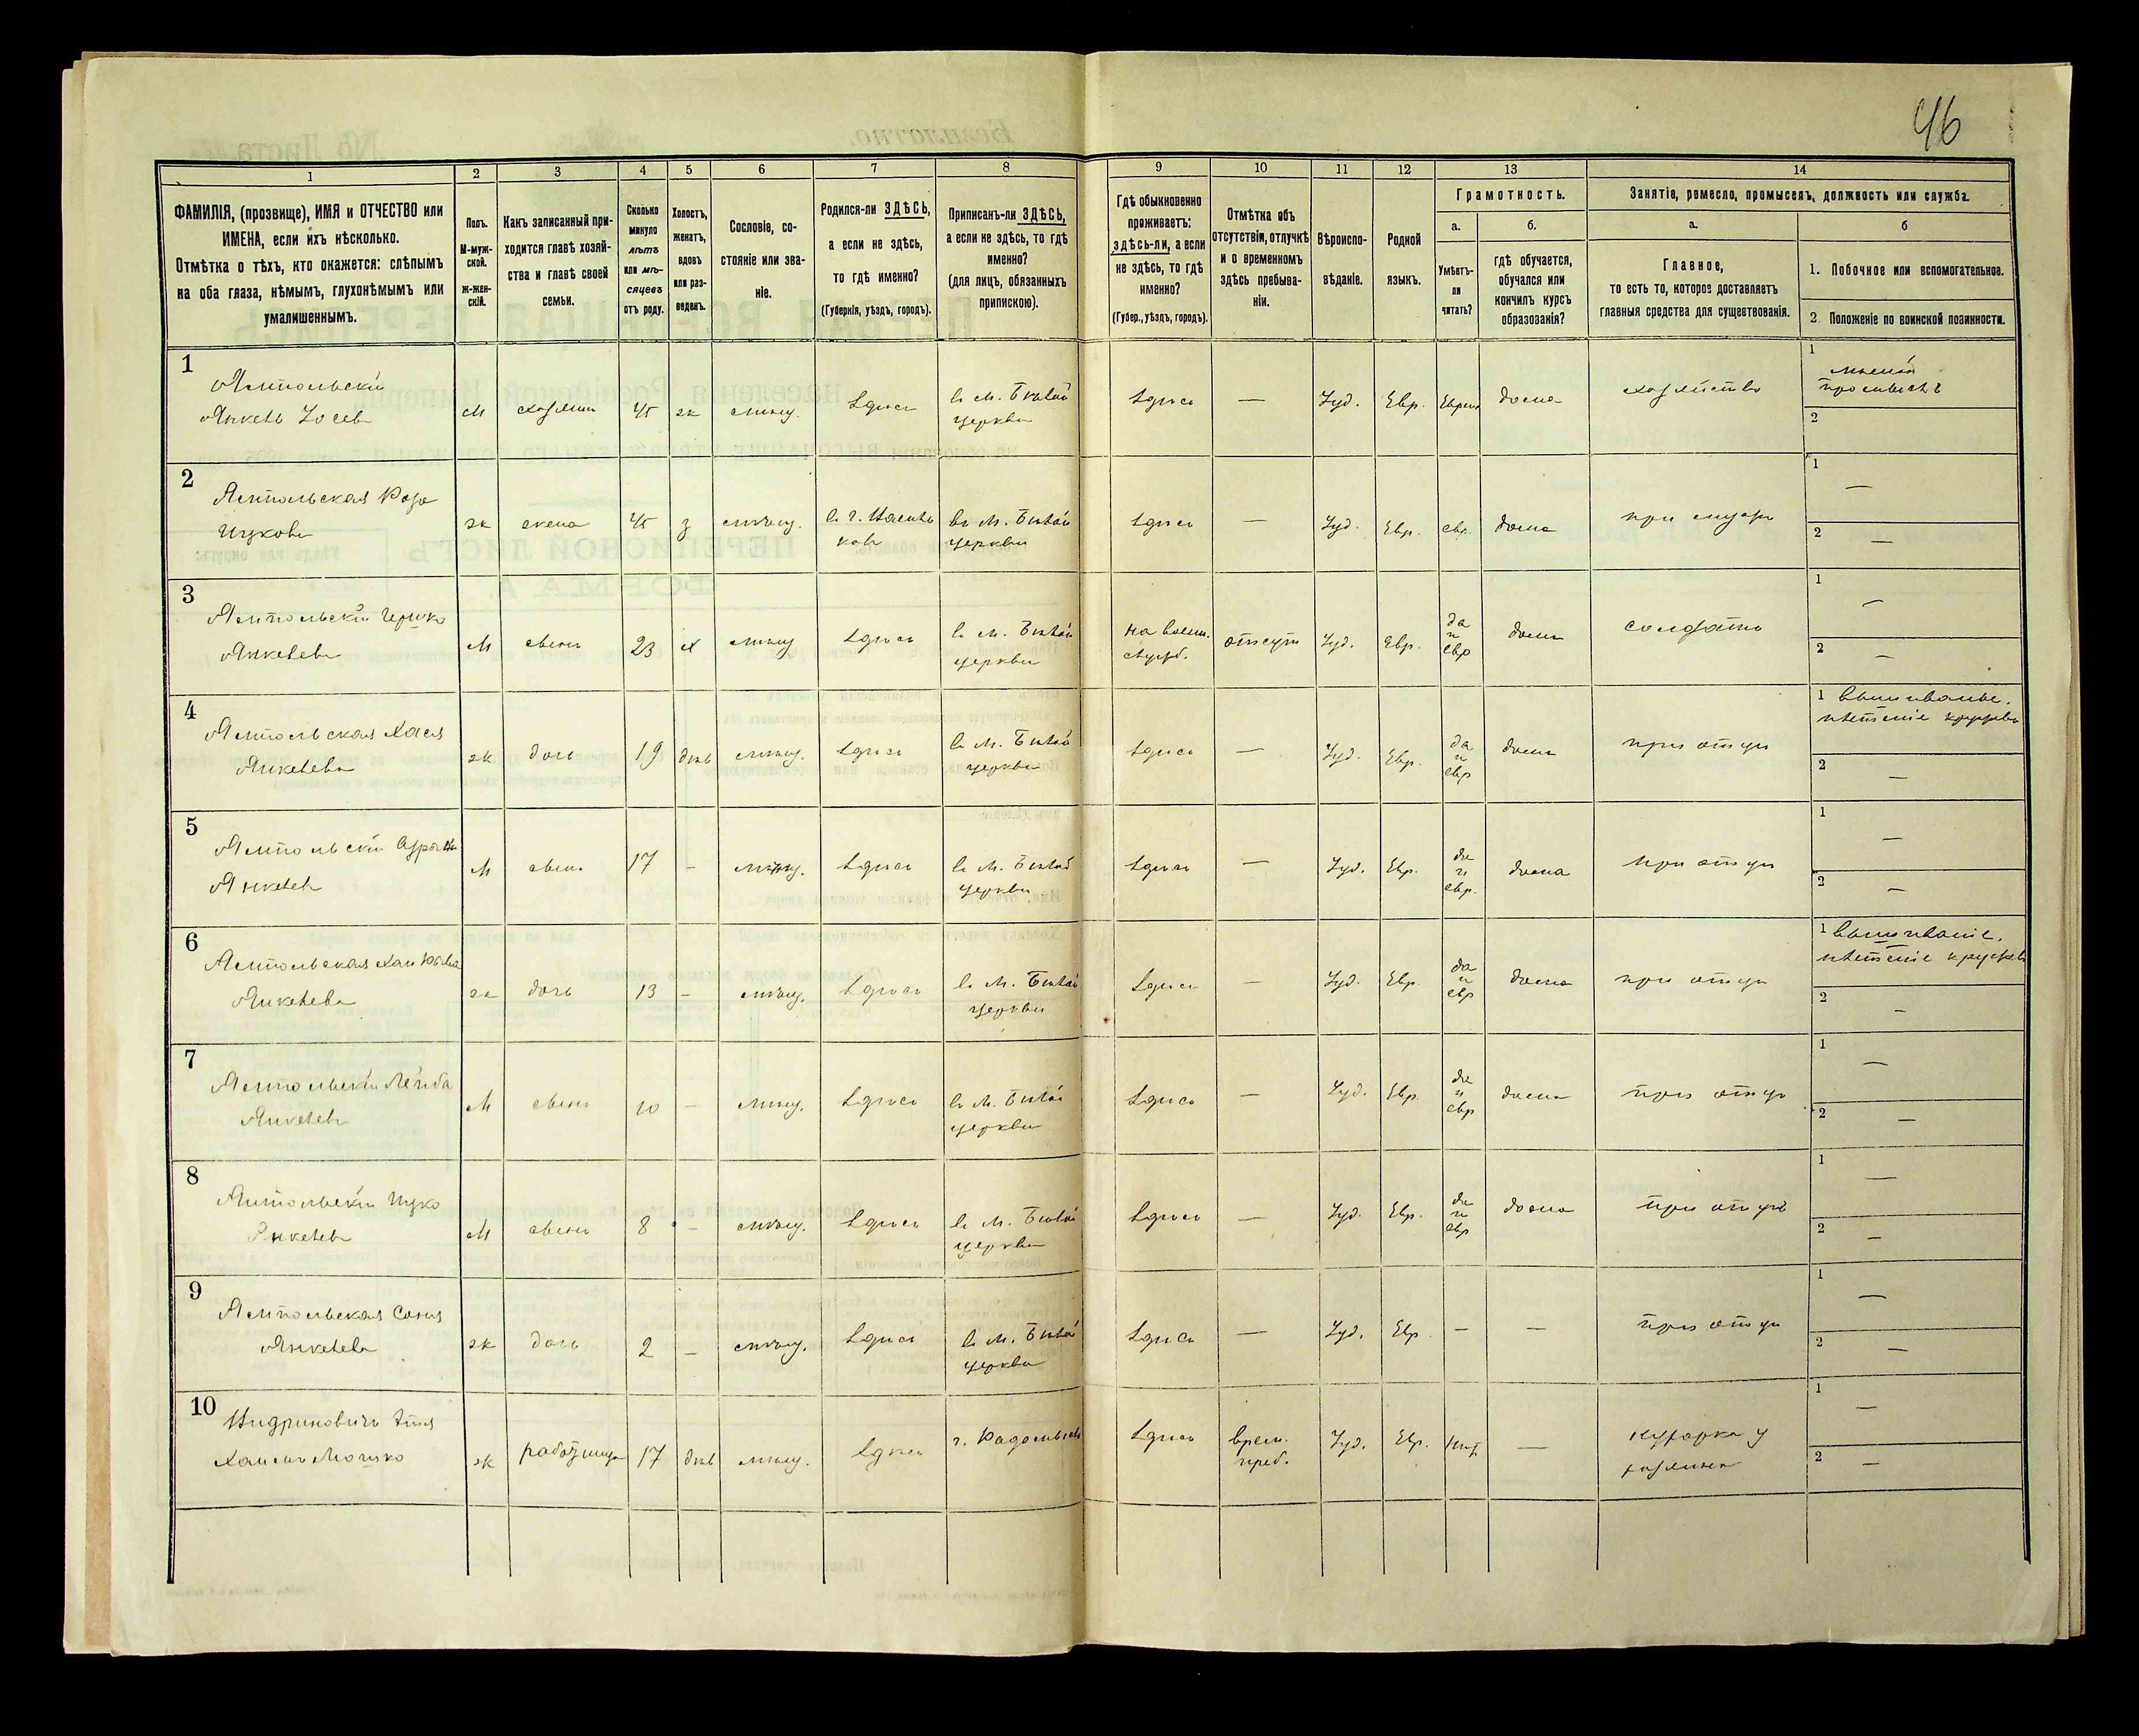 46
1
2
3
4
5
6
7
8
9
10
11
12
13
14
ФАМИЛІЯ, (прозвище), ИМЯ и ОТЧЕСТВО или
ИМЕНА, если ихъ нѣсколько.
Отмѣтка о тѣхъ, кто окажется: слѣпымъ
на оба глаза, нѣмымъ, глухонѣмымъ или
умалишеннымъ.
Полъ.
М-муж-
ской.
Ж-жен-
скій.
Какъ записанный при-
ходится главѣ хозяй-
ства и главѣ своей
семьи.
Сколько
минуло
лѣтъ
или мѣ-
сяцевъ
отъ роду.
Холостъ,
женатъ,
вдовъ
или раз-
веденъ.
Сословіе, со-
стояніе или зва-
ніе.
Родился-ли ЗДѢСЬ,
а если не здѣсь,
то гдѣ именно?
(Губернія, уѣздъ, городъ).
Приписанъ-ли ЗДѢСЬ,
а если не здѣсь, то гдѣ
именно?
(для лицъ, обязанныхъ
припискою).
Гдѣ обыкновенно
проживаетъ:
здѣсь-ли, а если
не здѣсь, то гдѣ
именно?
(Губер., уѣздъ, городъ).
Отмѣтка объ
отсутствіи, отлучкѣ
и о временномъ
здѣсь пребыва-
ніи.
Вѣроиспо-
вѣданіе.
Родной
языкъ.
Грамотность.
а.
б.
Умѣетъ-
ли
читать?
гдѣ обучается,
обучался или
кончилъ курсъ
образованія?
Занятіе, ремесло, промыселъ, должность или служба.
а.
б
Главное,
то есть то, которое доставляетъ
главныя средства для существованія.
1. Побочное или вспомогательное.
2. Положеніе по воинской повинности.
1
Ямпольскій
Янкель Іосев
м хозяинъ 45 ж мѣщ. здѣсь
в м. Бѣлой
церкви
здѣсь — Іуд. Евр. дома хозяйство
1
2
2
Ямпольская
Ицкова
ж жена 45 з мѣщ.
въ м. Бѣлой
церкви
здѣсь — Іуд. Евр. евр. дома
1 —
2 —
3
Ямпольскій Гершко
Янкелев
м сынъ 23 х мѣщ здѣсь
в м. Бѣлой
церкви
на воен.
служб.
отсут Іуд. Евр.
да
и
евр
дома солдатъ
1 —
2 —
4
Ямпольская Хася
Янкелева
ж дочь 19 дѣв мѣщ. здѣсь
в м. Бѣлой
церкви
здѣсь — Іуд. Евр.
да
и
евр
дома при отцѣ
1 вышиванье.
плетеніе кружевъ
2 —
5
Ямпольскій
Янкелев
м сынъ 17 - мѣщ. здѣсь
в м. Бѣлой
церкви
здѣсь — Іуд. Евр.
да
и
евр.
дома при отцѣ
1 —
2 —
6
Ямпольская
Янкелева
ж дочь 13 - мѣщ. здѣсь
в м. Бѣлой
церкви
здѣсь — Іуд. Евр.
да
и
евр
дома при отцѣ
1 вышиваніе.
плетеніе кружевъ
2 -
7
Ямпольскій Лейба
Янкелев
м сынъ 10 - мѣщ. здѣсь
в м. Бѣлой
церкви
здѣсь — Іуд. Евр.
да
и
евр
дома при отцѣ
1 —
2 —
8
Ямпольскій Ицко
Янкелев
м сынъ 8 - мѣщ. здѣсь
в м. Бѣлой
церкви
здѣсь — Іуд. Евр.
да
и
евр
дома при отцѣ
1 —
2 —
9
Ямпольская Соня
Янкелева
ж дочь 2 - мѣщ. здѣсь
в м. Бѣлой
церкви
здѣсь — Іуд. Евр — — при отцѣ
1 —
2 —
10
ж 17 дѣв мѣщ. здѣсь г. Радомысль здѣсь
врем.
преб.
Іуд. Евр. —
кухарка у
хозяина
1 —
2 —